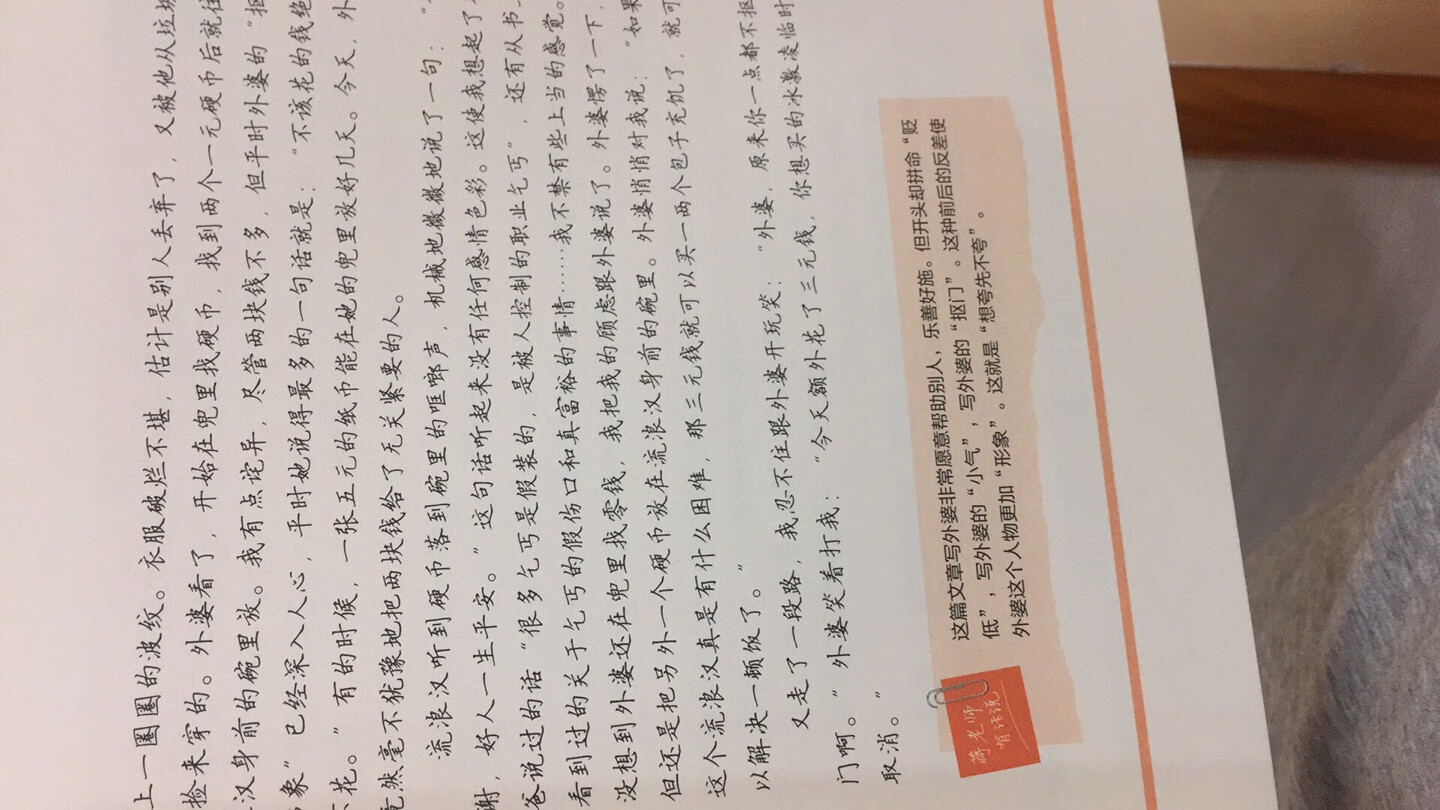 上一圈圈的波纹。衣服破烂不堪，估计是别人丢弃了，又被他从垃圾
捡来穿的。外婆看了，开始在兜里找硬币，找到两个一元硬币后就往
汉身前的碗里放。我有点诧异，尽管两块钱不多，但平时外婆的“抠
象”已经深入人心，平时她说得最多的一句话就是：“不该花的钱绝
花。”有的时候，一张五元的纸币能在她的兜里放好几天。今天，外
竟然毫不犹豫地把两块钱给了无关紧要的人。
流浪汉听到硬币落到碗里的哐啷声，机械地微微地说了一句：“
谢，好人一生平安。”这句话听起来没有任何感情色彩。这使我想起了
爸说过的话“很多乞丐是假装的，是被人控制的职业乞丐”，还有从书
看到过的关于乞丐的假伤口和真富裕的事情……我不禁有些上当的感觉。
没想到外婆还在兜里找零钱，我把我的顾虑跟外婆说了。外婆愣了一下，
但还是把另外一个硬币放在流浪汉身前的碗里。外婆悄悄对我说：“如果
这个流浪汉真是有什么困难，那三元钱就可以买一两个包子充饥了，就可
以解决一顿饭了。”
又走了一段路，我忍不住跟外婆开玩笑：“外婆，原来你一点都不抠
门啊。”外婆笑着打我：“今天额外花了三元钱，你想买的冰激凌临时
取消。”
蒋老师
有话说
这篇文章写外婆非常愿意帮助别人，乐善好施。但开头却拼命“贬
低”，写外婆的“小气”，写外婆的“抠门”。这种前后的反差使
外婆这个人物更加“形象”。这就是“想夸先不夸”。